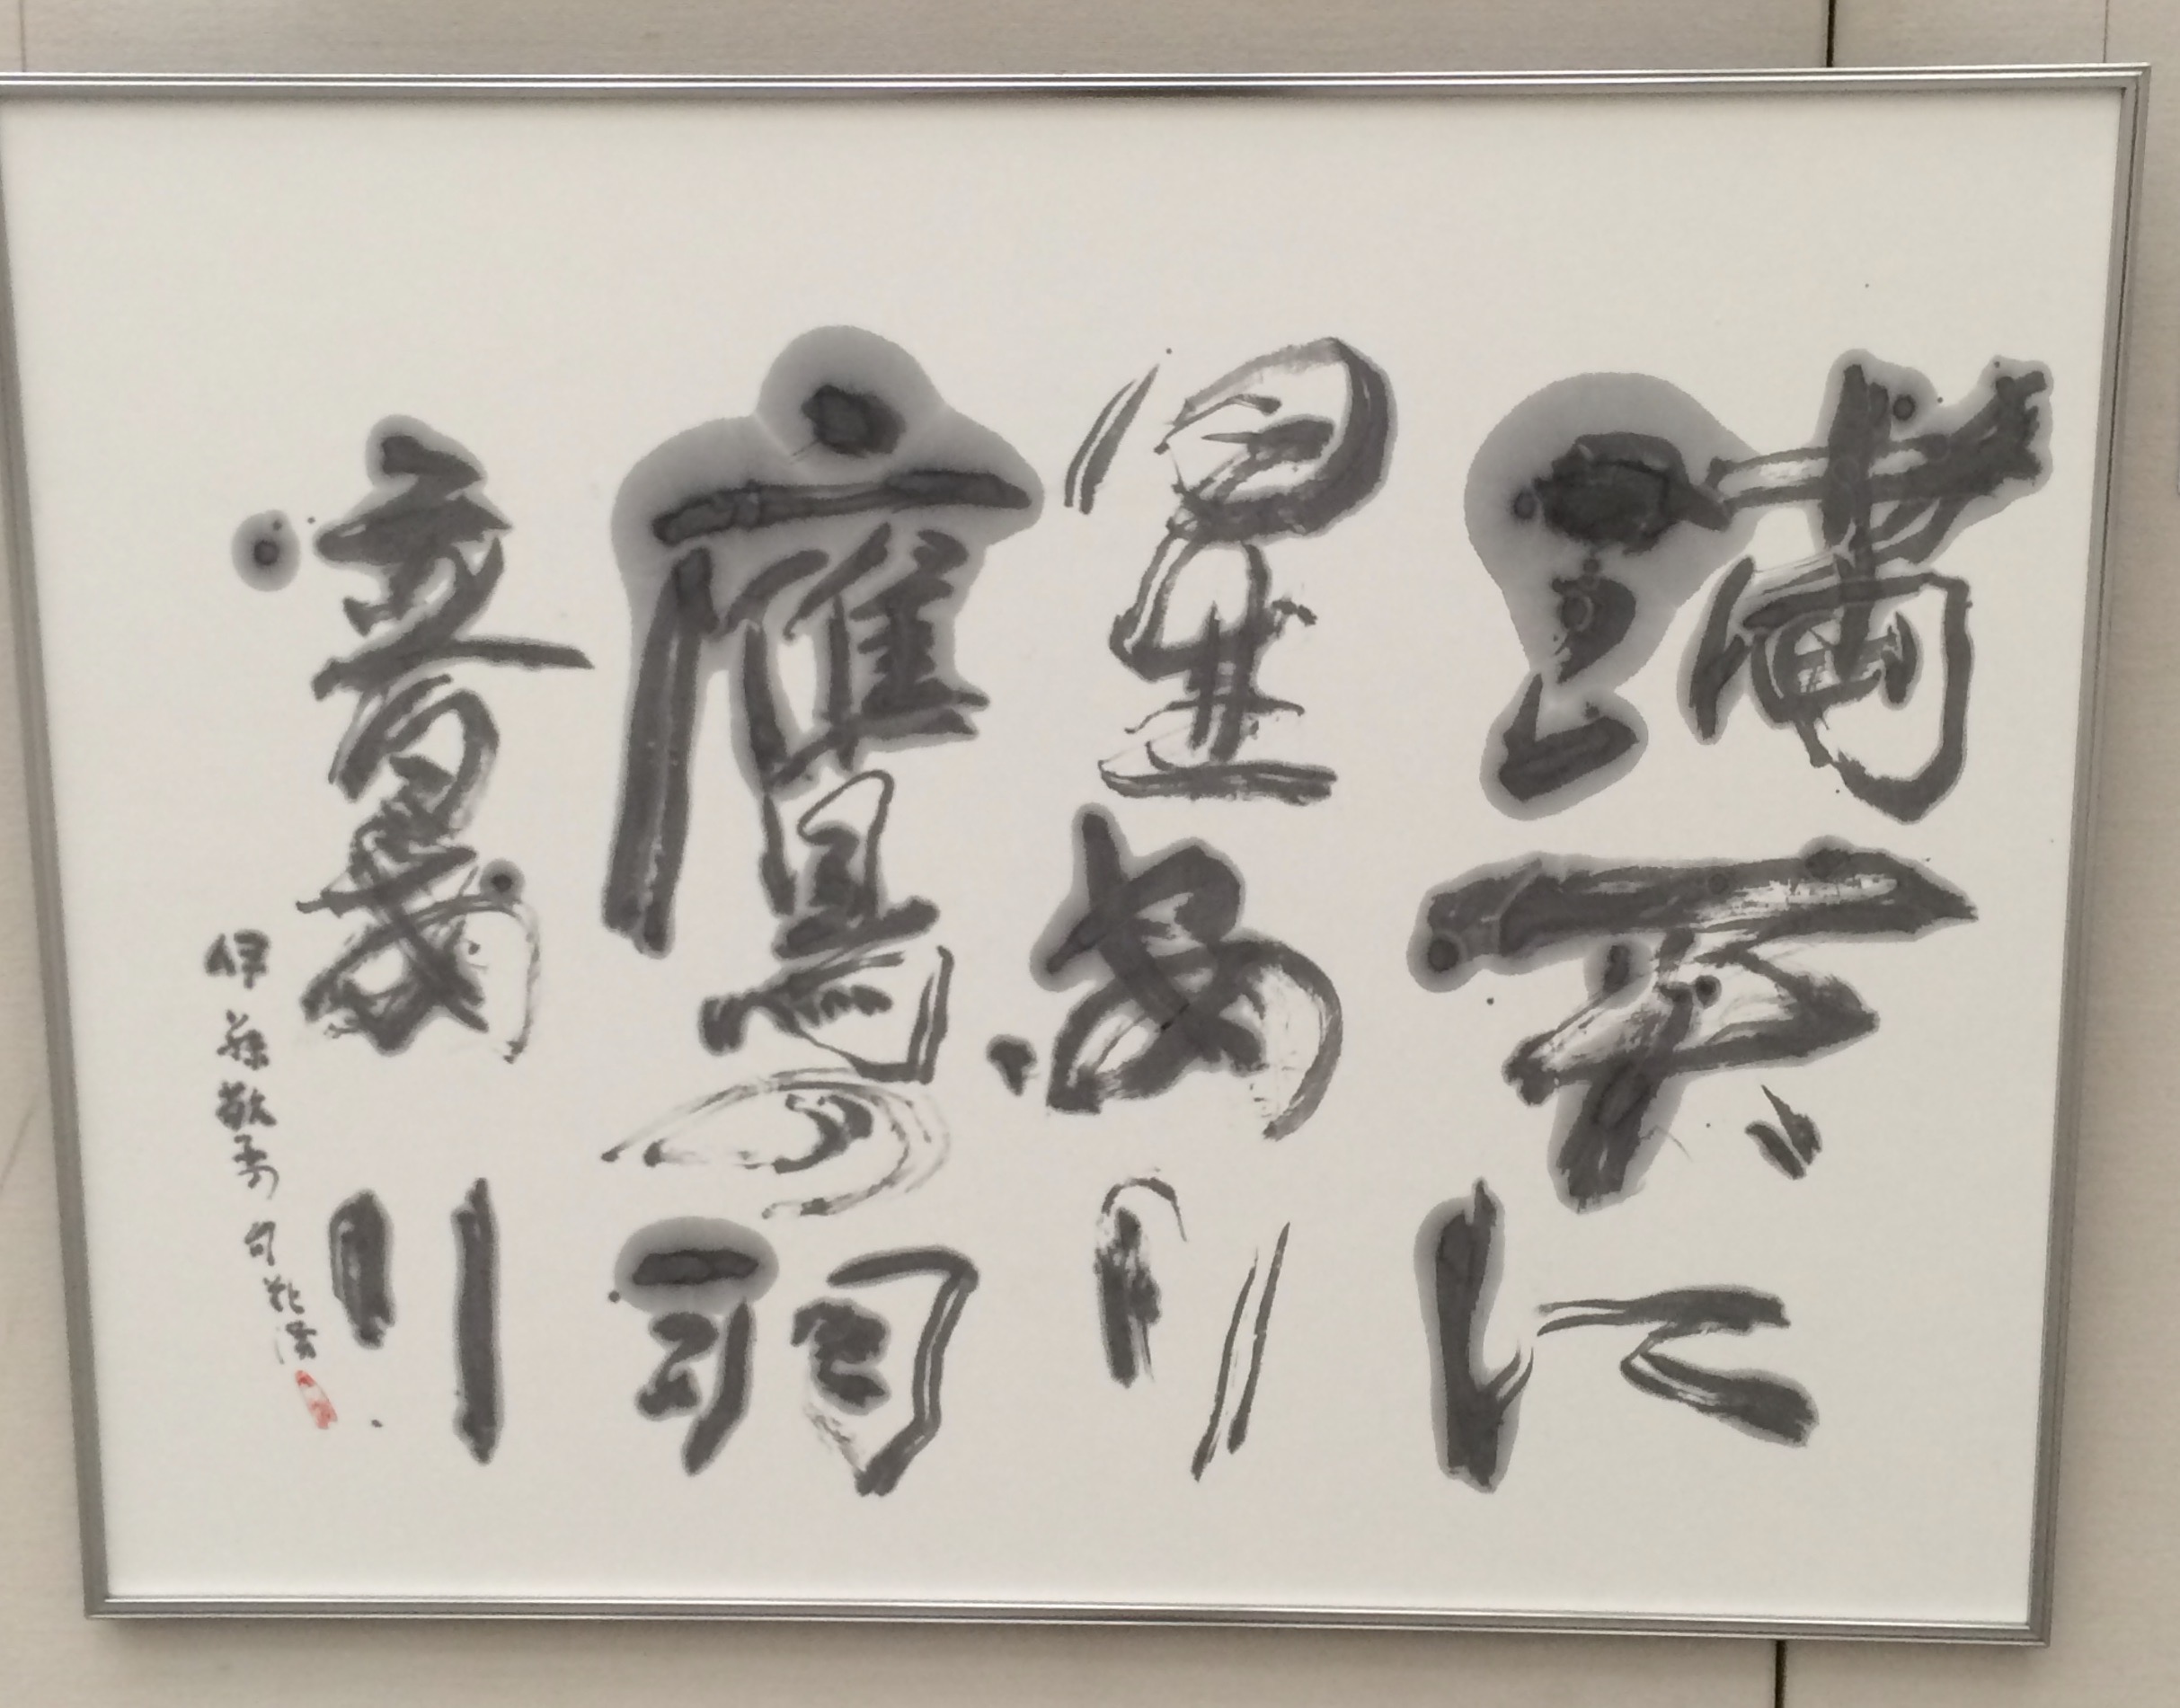 満天に
星あり
鷹の羽
音あり
伊藤敬子句